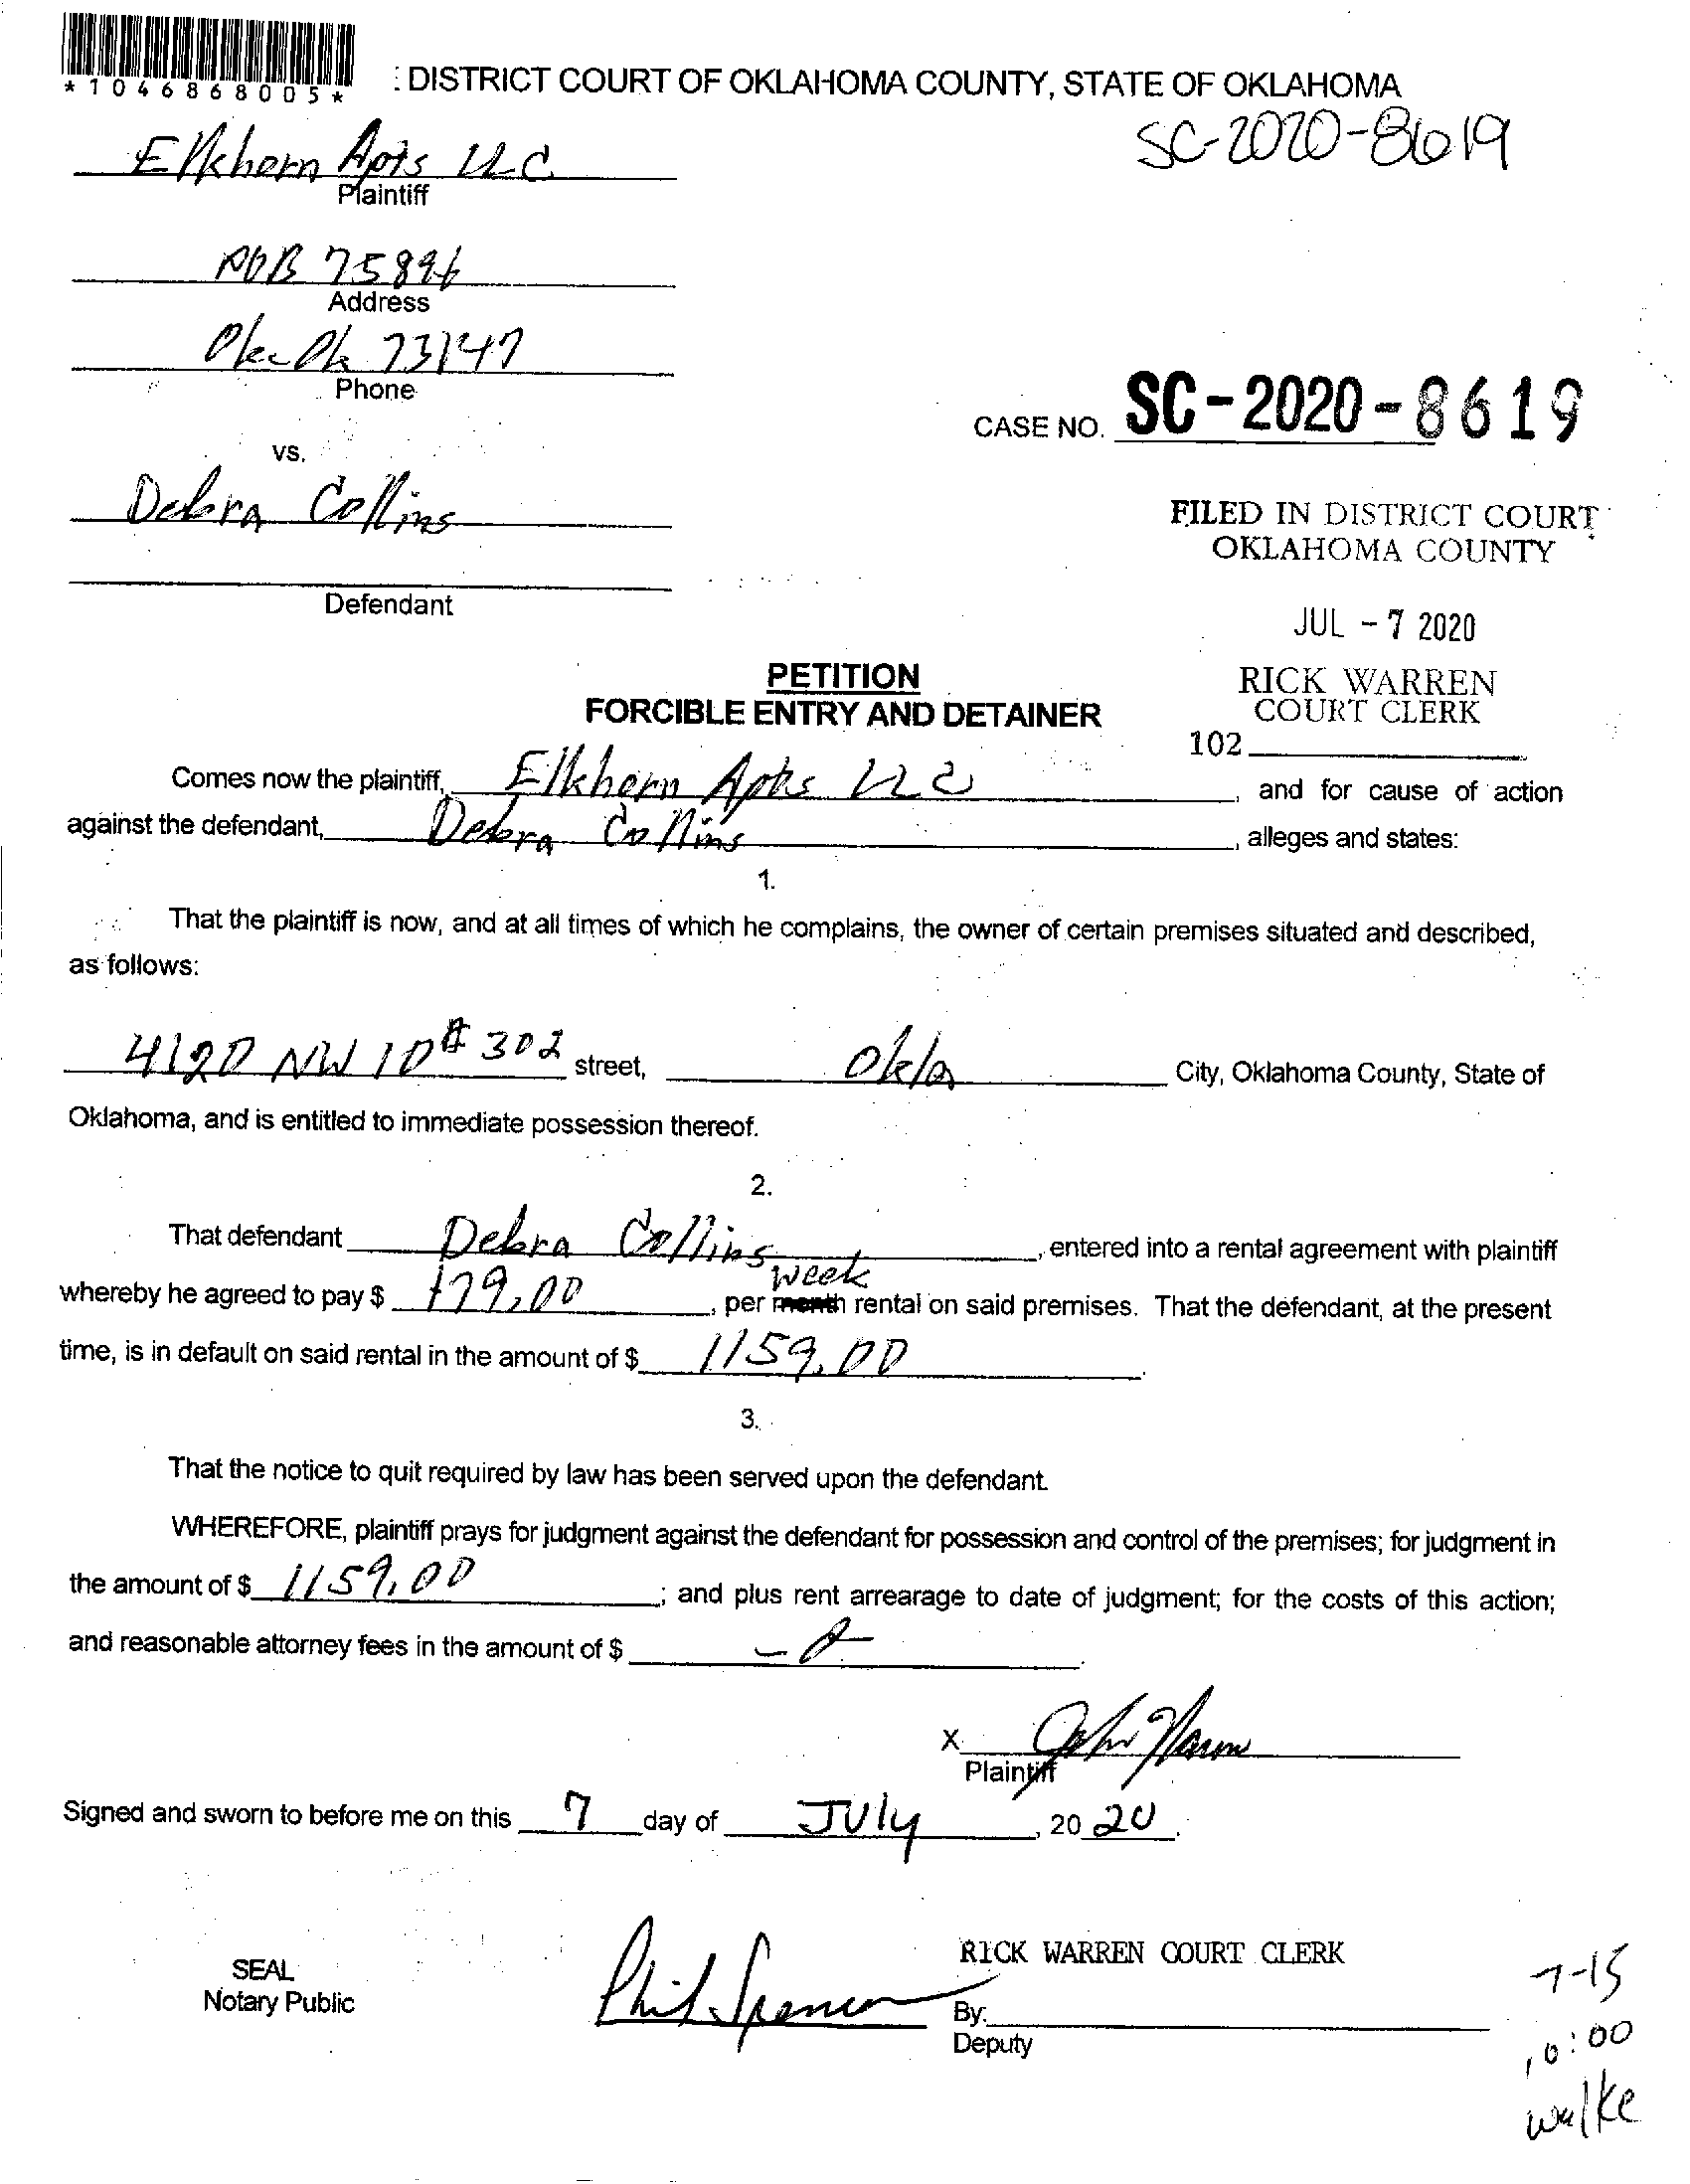 *1046868005*
: DISTRICT COURT OF OKLAHOMA COUNTY, STATE OF OKLAHOMA
SC-2020-8619
Elkhorn Apts LLC
Plaintiff
POB 75896
Address
Okc Ok 73147
Phone
CASE NO. SC-2020-8619
vs.
Debra Collins
FILED IN DISTRICT COURT
OKLAHOMA COUNTY
Defendant
JUL - 7 2020
PETITION
FORCIBLE ENTRY AND DETAINER
RICK WARREN
COURT CLERK
102
Comes now the plaintiff, Elkhorn Apts LLC, and for cause of action
against the defendant, Debra Collins, alleges and states:
1.
That the plaintiff is now, and at all times of which he complains, the owner of certain premises situated and described,
as follows:
4120 NW 10 # 302 street, Okla City, Oklahoma County, State of
Oklahoma, and is entitled to immediate possession thereof.
2.
That defendant Debra Collins, entered into a rental agreement with plaintiff
week
whereby he agreed to pay $ 179.00, per month rental on said premises. That the defendant, at the present
time, is in default on said rental in the amount of $ 1159.00.
3.
That the notice to quit required by law has been served upon the defendant.
WHEREFORE, plaintiff prays for judgment against the defendant for possession and control of the premises; for judgment in
the amount of $ 1159.00; and plus rent arrearage to date of judgment; for the costs of this action;
and reasonable attorney fees in the amount of $ -0-
X John
Plaintiff
Signed and sworn to before me on this 7 day of July, 2020.
SEAL
Notary Public
Phil Spencer
RICK WARREN COURT CLERK
By:
Deputy
7-15
10:00
walke